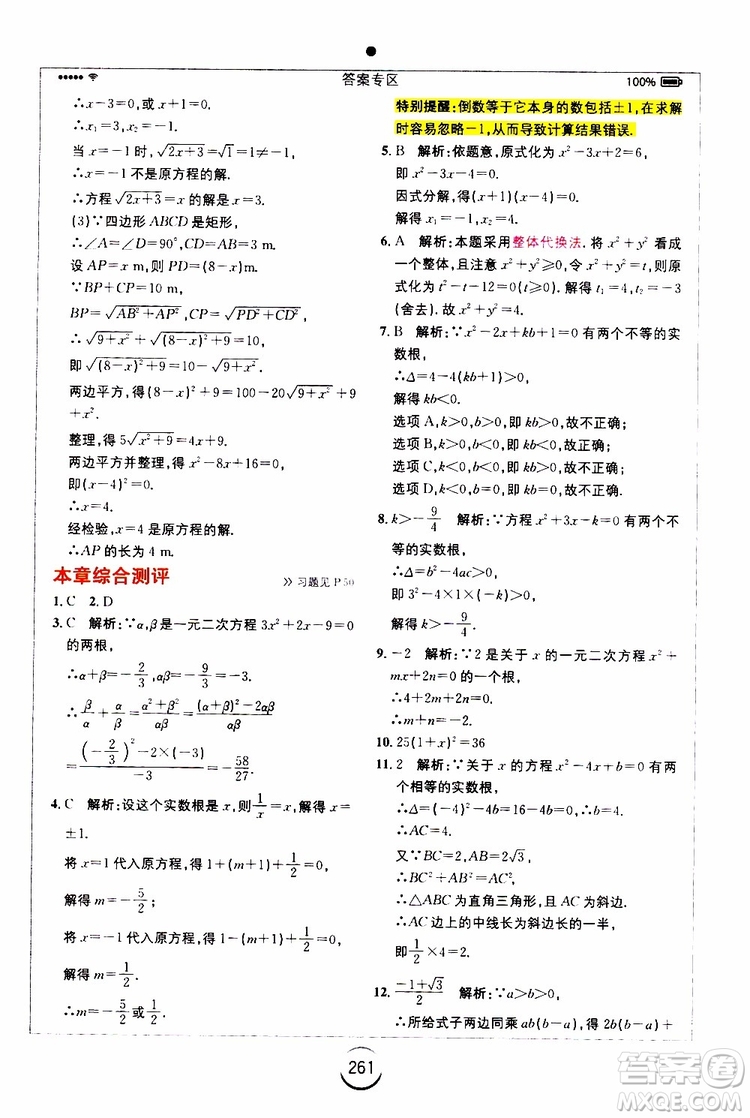 答案专区
100%
∴x-3=0,或x+1=0.
∴x₁=3,x₂=-1.
当 x=-1时,√(2x+3)=√1=1≠-1,
∴x=-1不是原方程的解.
∴方程√(2x+3)=x的解是x=3.
(3)∵四边形ABCD是矩形,
∴∠A=∠D=90°,CD=AB=3 m.
设AP=x m,则PD=(8-x) m.
∵BP+CP=10 m,
BP=√(AB²+AP²),CP=√(PD²+CD²),
∴√(9+x²)+√((8-x)²+9)=10,
即√((8-x)²+9)=10-√(9+x²).
两边平方,得(8-x)²+9=100-20√(9+x²)+9
+x².
整理,得5√(x²+9)=4x+9.
两边平方并整理,得x²-8x+16=0,
即(x-4)²=0.
∴x=4.
经检验,x=4是原方程的解.
∴AP的长为4 m.
本章综合测评
≫习题见P50
1.C 2.D
3.C 解析:∵α,β是一元二次方程3x²+2x-9=0
的两根,
∴α+β=-2/3,αβ=-9/3=-3.
∴β/α+α/β=(α²+β²)/αβ=((α+β)²-2αβ)/αβ
=((-2/3)²-2×(-3))/-3=-58/27.
4.C 解析:设这个实数根是x,则1/x=x,解得x=
±1.
将x=1代入原方程,得1+(m+1)+1/2=0,
解得m=-5/2;
将x=-1代入原方程,得1-(m+1)+1/2=0,
解得m=1/2.
∴m=-5/2或1/2.
特别提醒:倒数等于它本身的数包括±1,在求解
时容易忽略-1,从而导致计算结果错误.
5.B 解析:依题意,原式化为x²-3x+2=6,
即x²-3x-4=0.
因式分解,得(x+1)(x-4)=0.
解得x₁=-1,x₂=4.
6.A 解析:本题采用整体代换法.将x²+y²看成
一个整体,且x²+y²≥0,令x²+y²=t,则原
式化为t²-t-12=0(t≥0).解得t₁=4,t₂=-3
(舍去).故x²+y²=4.
7.B 解析:∵x²-2x+kb+1=0有两个不等的实
数根,
∴Δ=4-4(kb+1)>0,
解得kb<0.
选项A,k>0,b>0,即kb>0,故不正确;
选项B,k>0,b<0,即kb<0,故正确;
选项C,k<0,b<0,即kb>0,故不正确;
选项D,k<0,b=0,即kb=0,故不正确.
8.k>-9/4 解析:∵方程x²+3x-k=0有两个不
等的实数根,
∴Δ=b²-4ac>0,
即3²-4×1×(-k)>0,
解得k>-9/4.
9.-2 解析:∵2是关于x的一元二次方程x²+
mx+2n=0的一个根,
∴4+2m+2n=0.
∴m+n=-2.
10.25(1+x)²=36
11.2 解析:∵关于x的方程x²-4x+b=0有两
个相等的实数根,
∴Δ=(-4)²-4b=16-4b=0,
∴AC=4.
又∵BC=2,AB=2√3,
∴BC²+AB²=AC².
∴△ABC为直角三角形,AC为斜边.
∴AC边上的中线长为斜边的一半,
即1/2×4=2.
12.(-1+√3)/2 解析:∵a>b>0,
∴所给式子两边同乘ab(b-a),得2b(b-a)+
261
答案圈
MXQE.COM